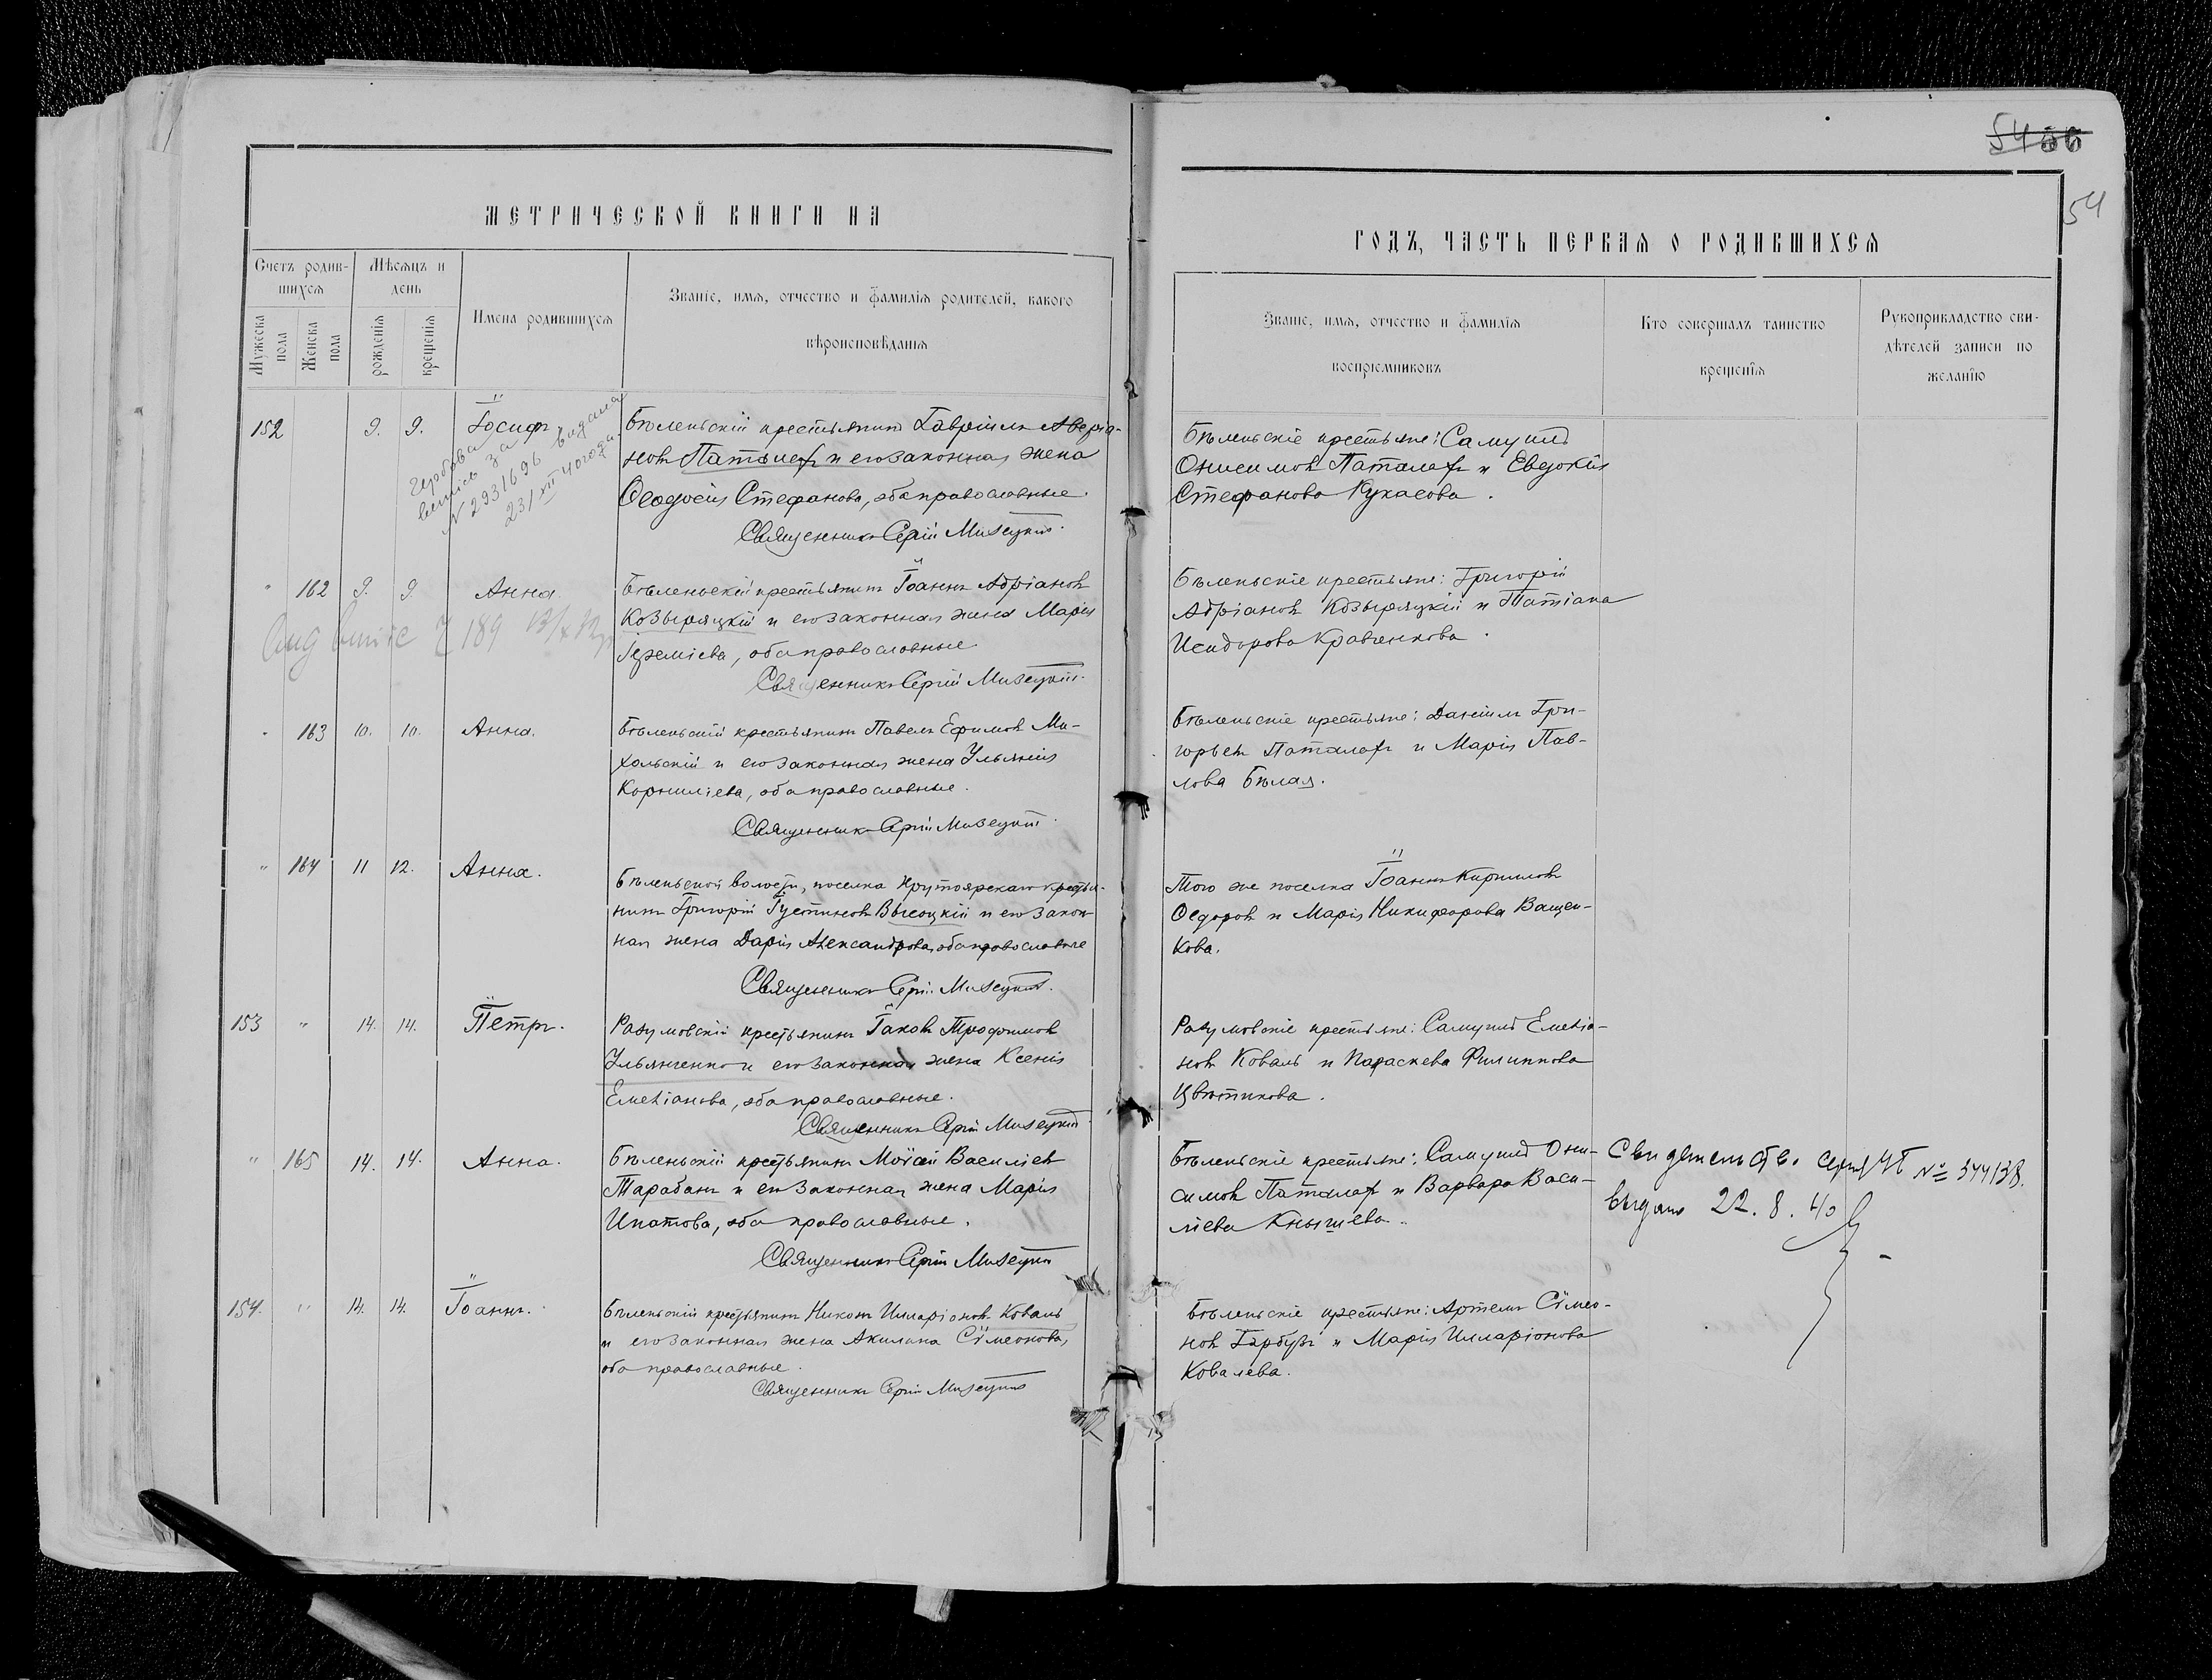 54 66
54
МЕТРИЧЕСКОЙ КНИГИ НА
ГОДЪ, ЧАСТЬ ПЕРВАЯ О РОДИВШИХСЯ
Счетъ родив-
шихся
Мѣсяцъ и
день
Мужеска
пола
Женска
пола
рожденія
крещенія
Имена родившихся
Званіе, имя, отчество и фамилія родителей, какого
вѣроисповѣданія
Званіе, имя, отчество и фамилія
воспріемниковъ
Кто совершалъ таинство
крещенія
Рукоприкладство сви-
дѣтелей записи по
желанію
152 9. 9. Іосифъ
за
№ 2931696 видана
23/VII
Бѣленьскій крестьянинъ Гавріилъ Аверіа-
новъ Паталахъ и его законная жена
Ѳеодосія Стефанова, оба православные.
Священникъ Сергій Мизецкій.
Бѣленьскіе крестьяне: Самуилъ
Онисимовъ Паталахъ и Евдокія
Стефанова Кукасова.
" 162 9. 9 Анна
189
Бѣленьскій крестьянинъ Іоаннъ Адріановъ
Козыряцкій и его законная жена Марія
Іереміева, оба православные
Священникъ Сергій Мизецкій.
Бѣленьскіе крестьяне: Григорій
Адріановъ Козыряцкій и Татіана
Исидорова Кравченкова.
" 163 10. 10. Анна.
Бѣленьскій крестьянинъ Павелъ Ефимовъ Ми-
хольскій и его законная жена Ульянія
Корниліева, оба православные.
Священникъ Сергій Мизецкій.
Бѣленьскіе крестьяне: Даніилъ Гри-
горьевъ Паталахъ и Марія Пав-
лова Бѣлая.
" 164 11 12. Анна.
Бѣленьской волости, поселка Крутоярскаго крестья-
нинъ Григорій Іустиновъ Высоцкій и его закон-
ная жена Дарія Александрова, оба православные
Священникъ Сергій Мизецкій.
Того же поселка Іоаннъ Кирилловъ
Ѳедоровъ и Марія Никифорова Ващен-
кова.
153 " 14. 14. Петръ.
Разумовскій крестьянинъ Іаковъ Трофимовъ
Ульянченко и его законная жена Ксенія
Емеліанова, оба православные.
Священникъ Сергій Мизецкій
Разумовскіе крестьяне: Самуилъ Емеліа-
новъ Коваль и Параскева Филиппова
Цвѣтикова.
" 165 14. 14. Анна.
Бѣленьскій крестьянинъ Моѵсей Василіевъ
Тарабанъ и его законная жена Марія
Ипатова, оба православные.
Священникъ Сергій Мизецкій
Бѣленьскіе крестьяне: Самуилъ Они-
симовъ Паталахъ и Варвара Васи-
ліева Кнышева.
Свидетельство серия ЧТ № 344138.
выдано 22. 8. 40
154. " 14. 14. Іоаннъ.
Бѣленьскій крестьянинъ Никонъ Илларіоновъ Коваль
и его законная жена Акилина Сѵмеонова,
оба православные.
Священникъ Сергій Мизецкій
Бѣленьскіе крестьяне: Артемъ Сѵмео-
новъ Гарбузъ и Марія Илларіонова
Ковалева.